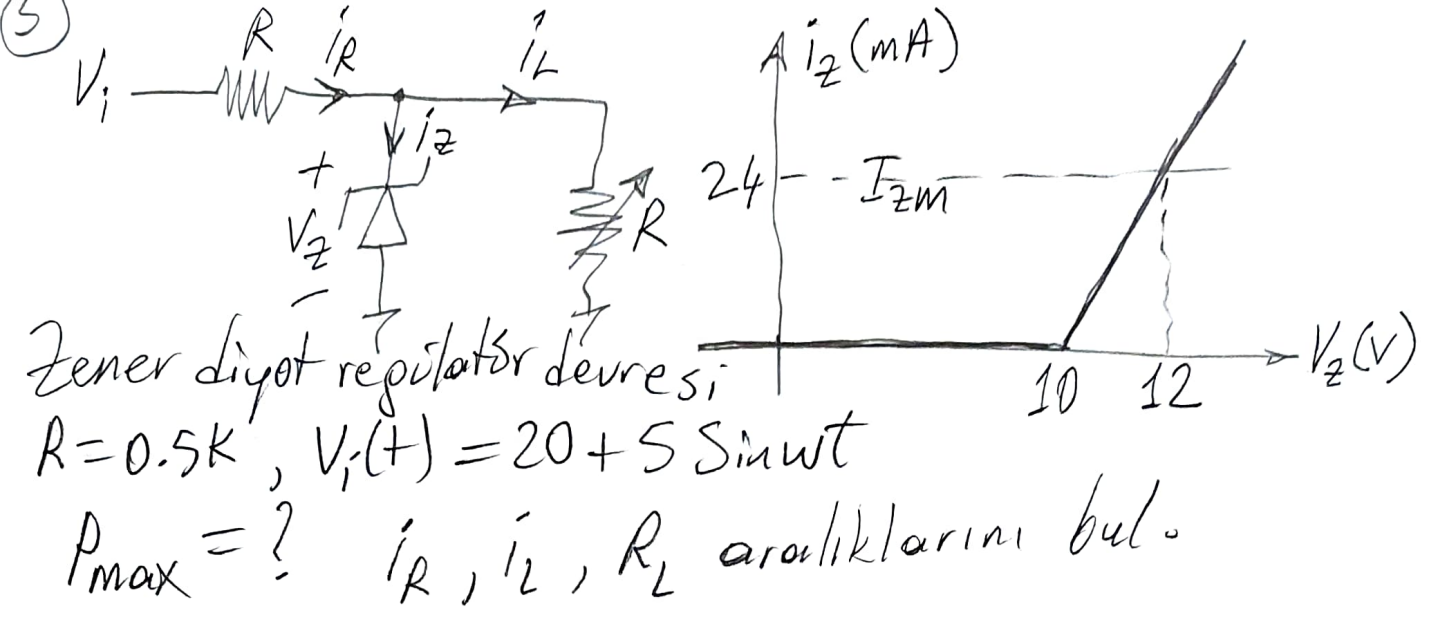 5
R iR iL
Vi
iz
+
Vz
−
R
iz (mA)
24 Izm
10 12 Vz (V)
Zener diyot regülatör devresi
R=0.5K , Vi(t) = 20+5 Sinwt
Pmax = ? iR , iL , RL aralıklarını bul.